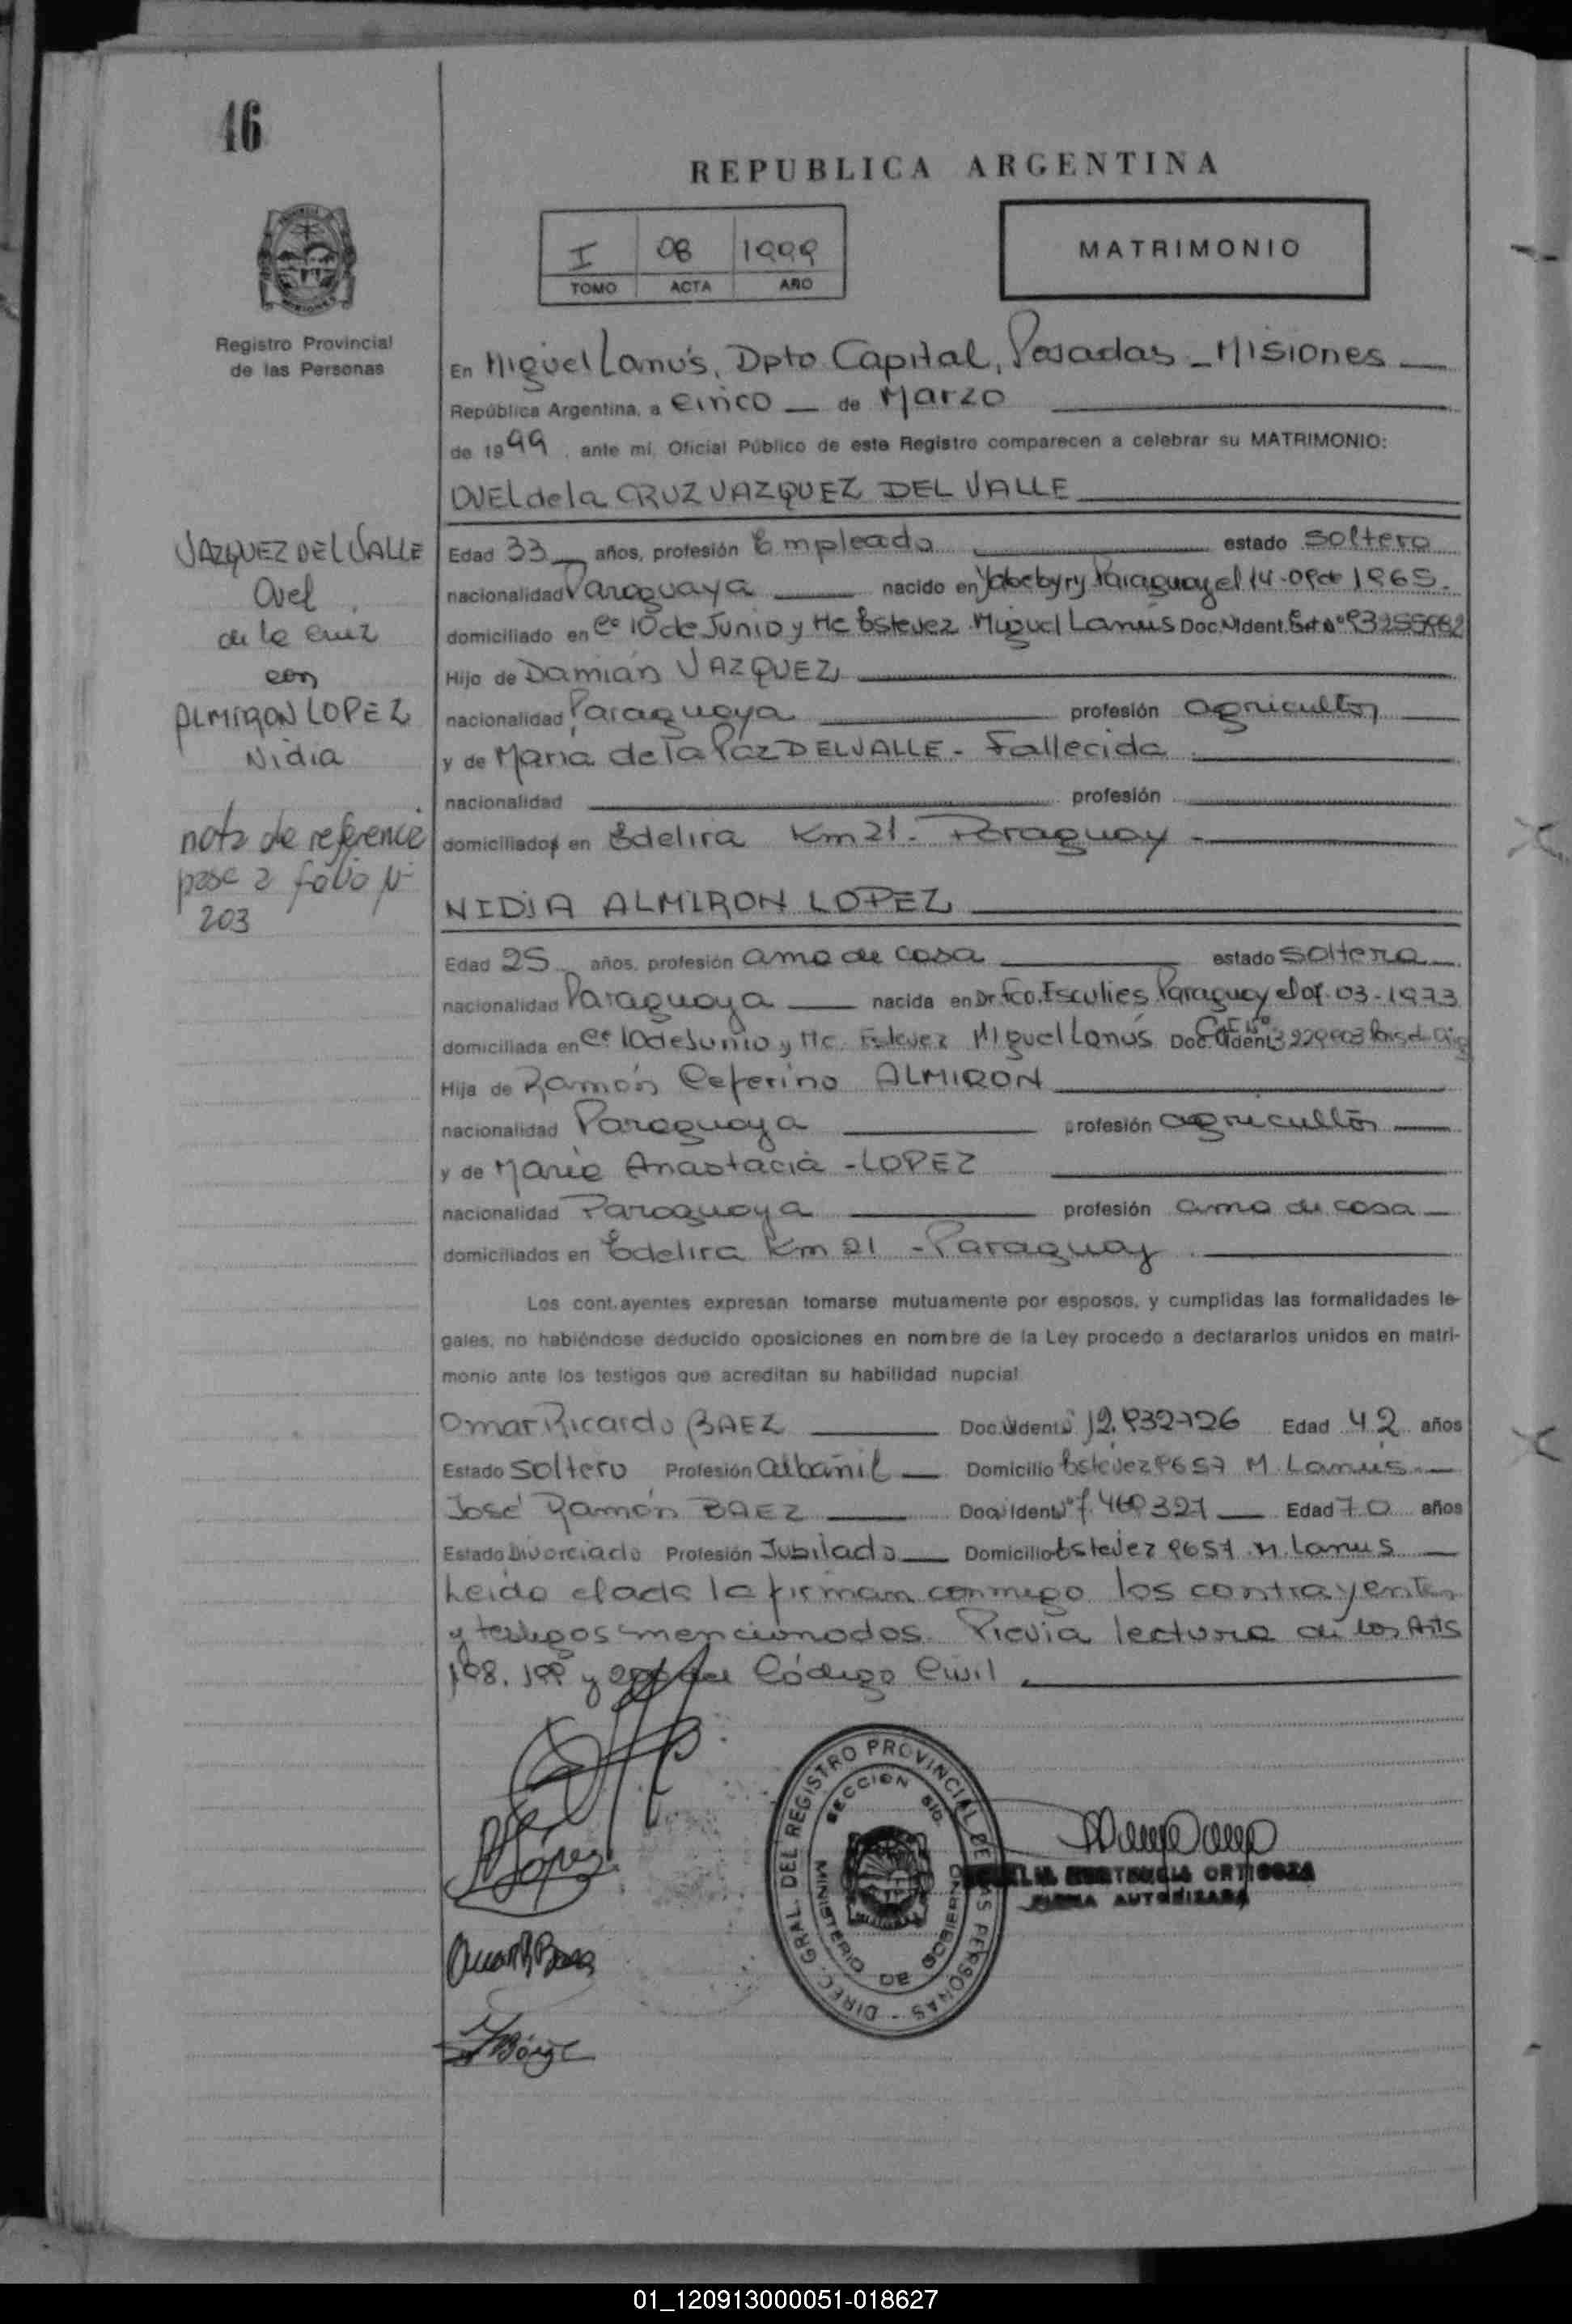 46
REPUBLICA ARGENTINA
I 08 1999
TOMO ACTA AÑO
MATRIMONIO
Registro Provincial
de las Personas
En Miguel Lanús, Dpto Capital, Posadas - Misiones
República Argentina, a cinco de Marzo
de 1999, ante mi, Oficial Público de este Registro comparecen a celebrar su MATRIMONIO:
OVEL de la CRUZ VAZQUEZ DEL VALLE
VAZQUEZ DEL VALLE
Ovel
de la Cruz
con
ALMIRON LOPEZ
Nidia
nota de referencia
pase a folio Nº
203
Edad 33 años, profesión Empleado estado soltero
nacionalidad Paraguaya nacido en Yabebyry Paraguay el 14-09 de 1965.
domiciliado en Ce 10 de Junio y Hc Estevez Miguel Lanús Doc. Ident.
Hijo de Damián VAZQUEZ
nacionalidad Paraguaya profesión agricultor
y de María de la Paz DEL VALLE - Fallecida
nacionalidad profesión
domiciliados en Edelira Km 21 - Paraguay -
NIDIA ALMIRON LOPEZ
Edad 25 años, profesión ama de casa estado soltera
nacionalidad Paraguaya nacida en Dr. Fco. Esculies Paraguay el 03-1973
domiciliada en Ce 10 de Junio y Hc. Estevez Miguel Lanús Doc. Ident.
Hija de Ramón Ceferino ALMIRON
nacionalidad Paraguaya profesión agricultor
y de María Anastacia - LOPEZ
nacionalidad Paraguaya profesión ama de casa
domiciliados en Edelira Km 21 - Paraguay
Los contrayentes expresan tomarse mutuamente por esposos, y cumplidas las formalidades le-
gales, no habiéndose deducido oposiciones en nombre de la Ley procedo a declararlos unidos en matri-
monio ante los testigos que acreditan su habilidad nupcial
Omar Ricardo BAEZ Doc. Ident. 12.932726 Edad 42 años
Estado soltero Profesión albañil Domicilio Estevez 9657 M. Lanús
José Ramón BAEZ Doc. Ident. Nº 7.460321 Edad 70 años
Estado Divorciado Profesión Jubilado Domicilio Estevez 9657 M. Lanus
Leída el acta la firman conmigo los contrayentes
y testigos mencionados. Previa lectura de los Arts
198, 199 y 200 del Código Civil
DIREC. GRAL. DEL REGISTRO PROVINCIAL DE LAS PERSONAS
SECCION
MINISTERIO DE GOBIERNO
HORTENCIA ORTIGOZA
FIRMA AUTORIZADA
López
01_120913000051-018627